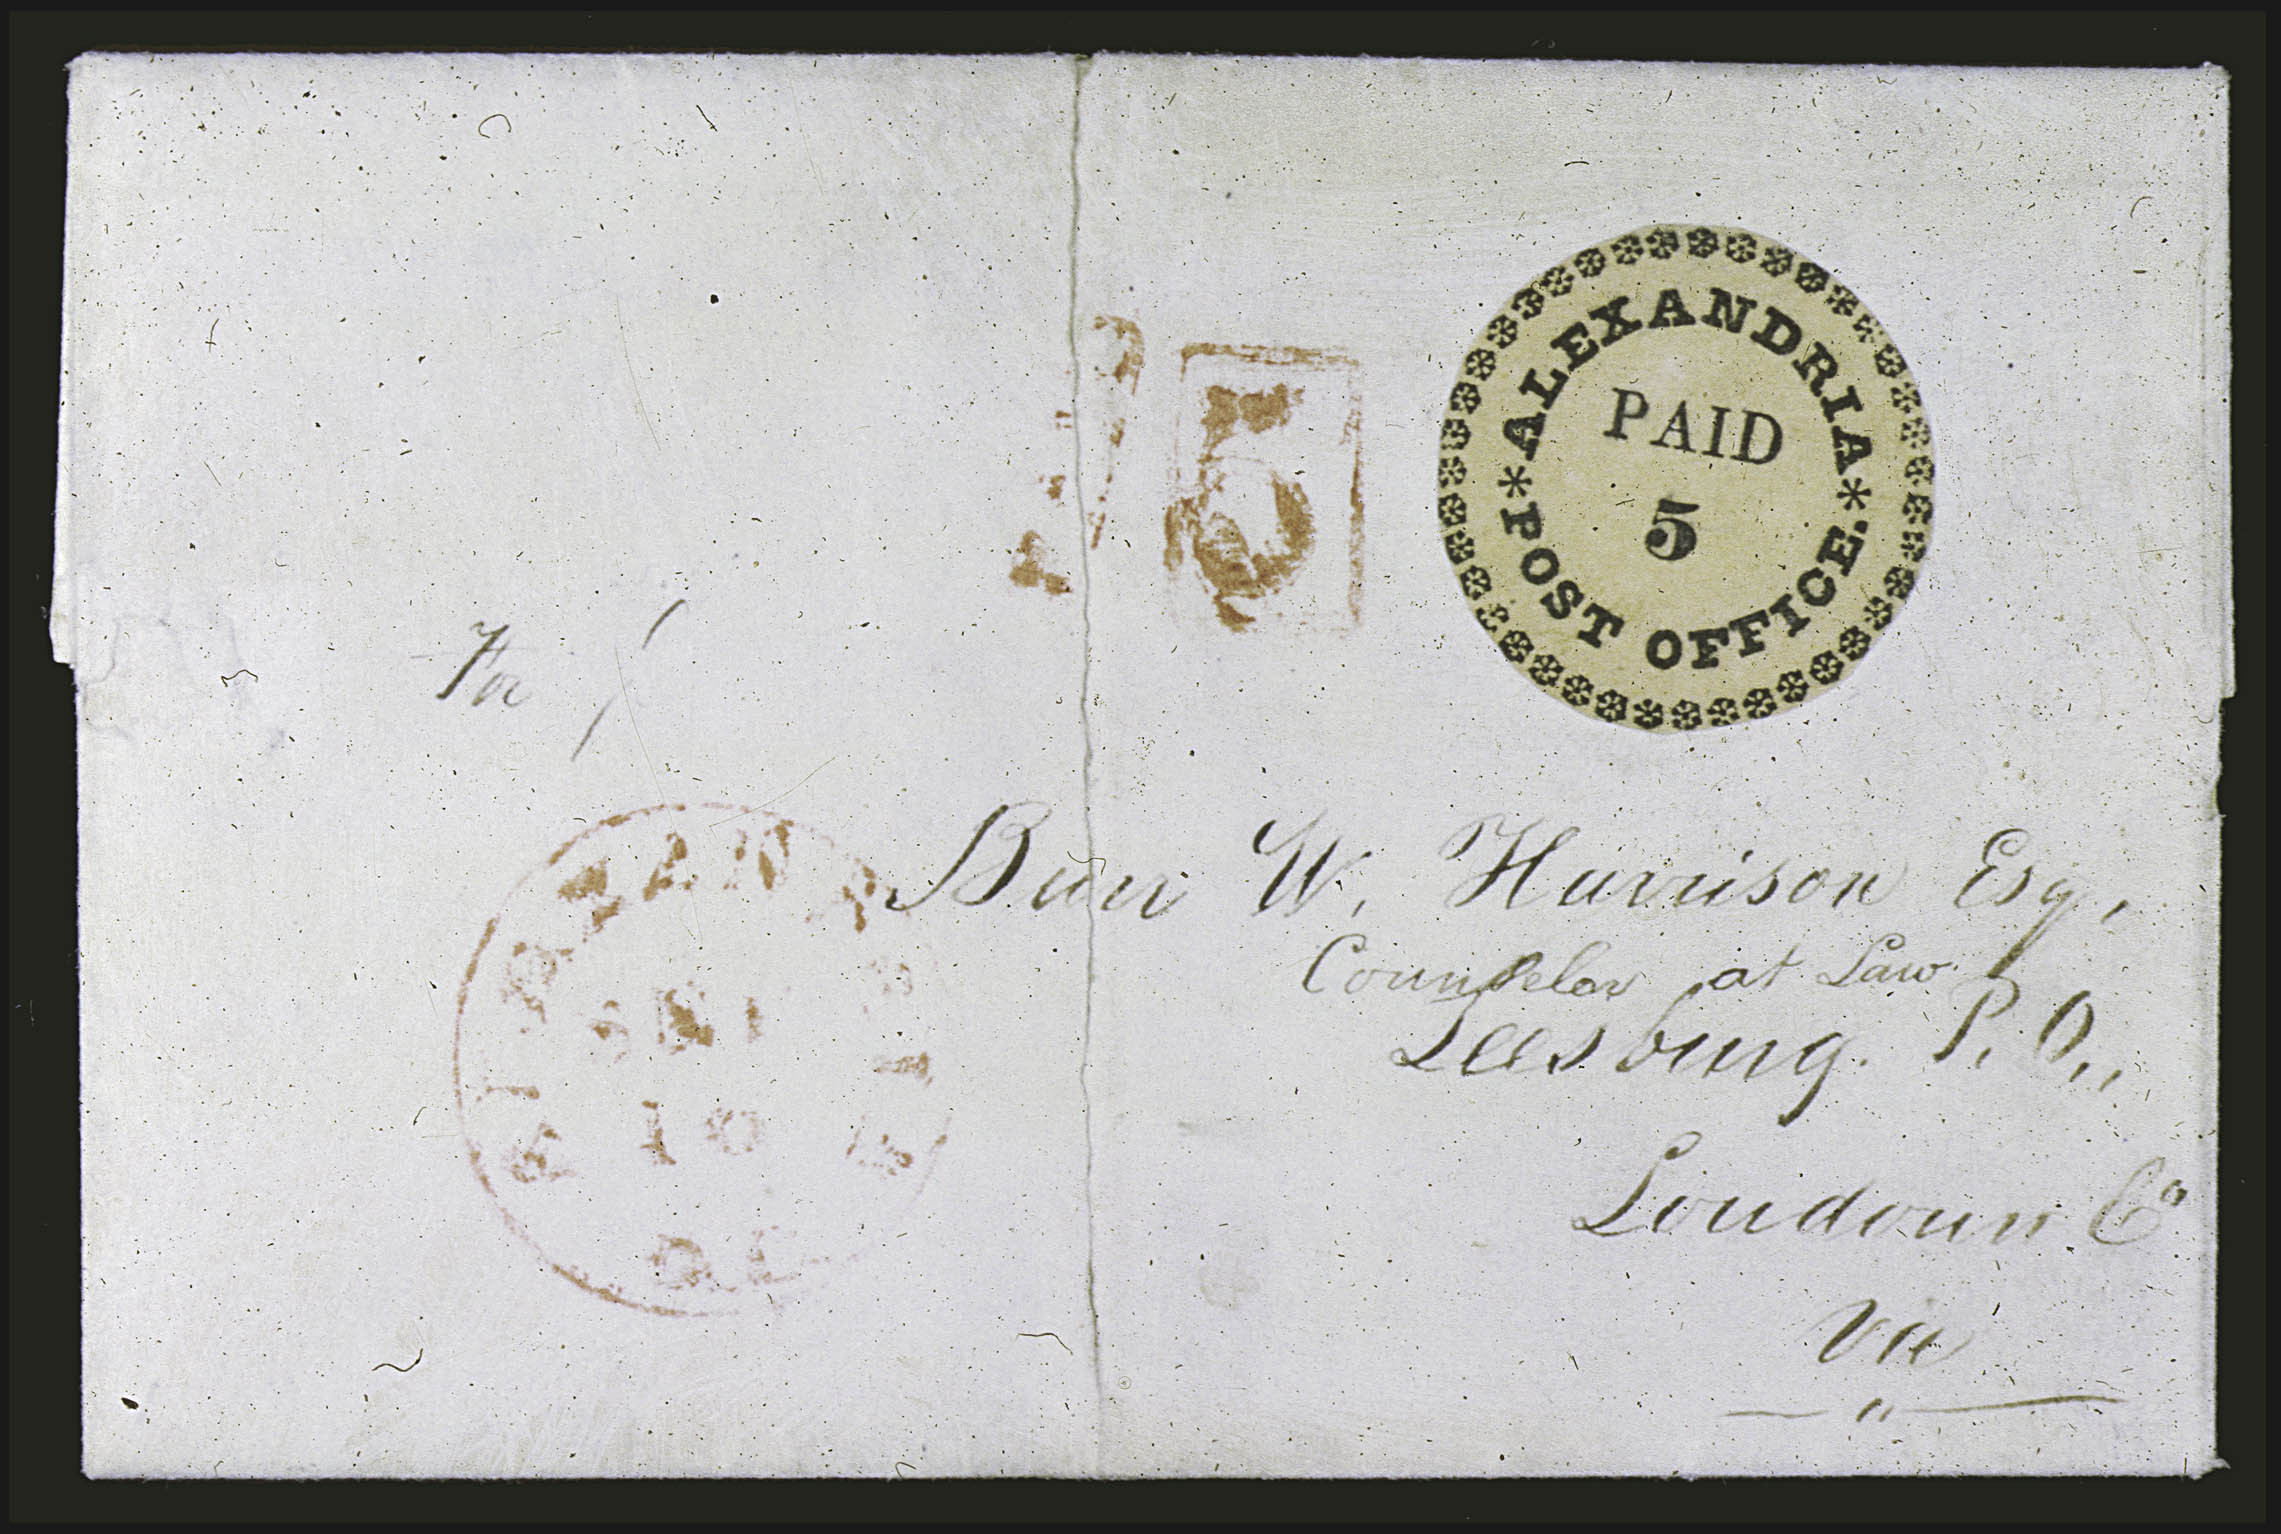 * ALEXANDRIA *
POST OFFICE.
PAID
5
5
Burr W. Harrison Esq.,
Counselor at Law
Leesburg. P. O.,,
Loudoun Co
Va
10